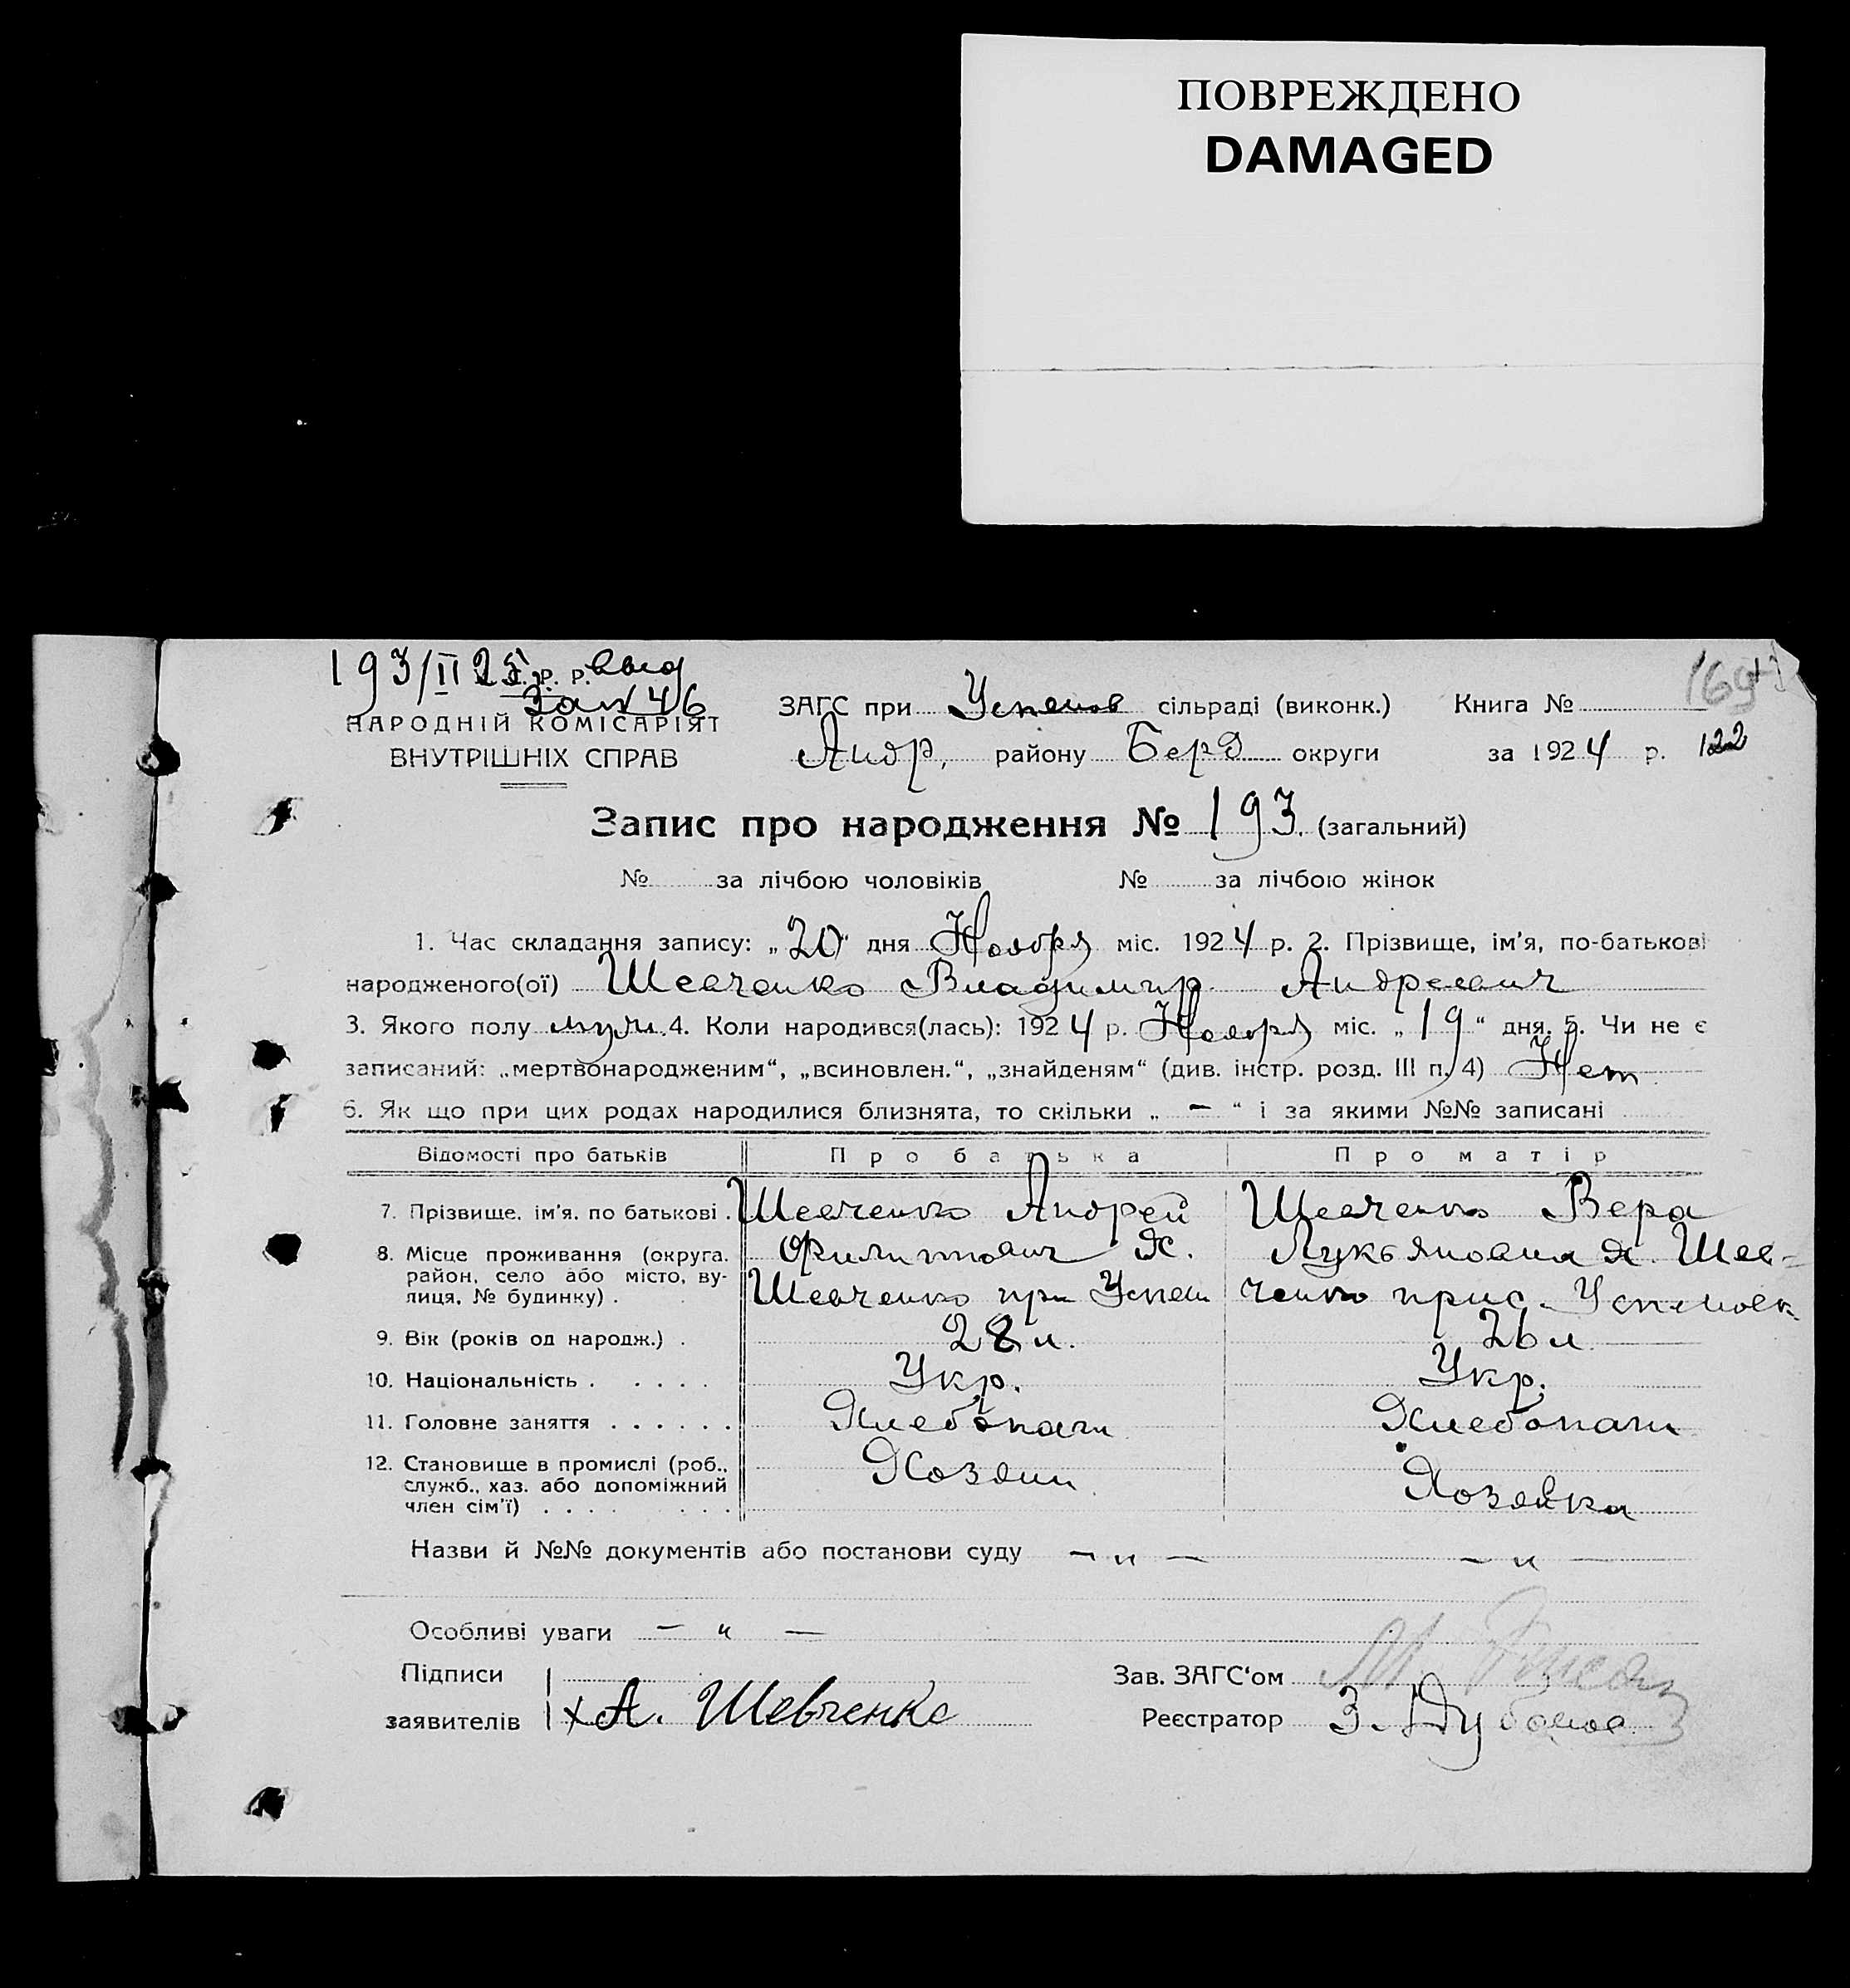 ПОВРЕЖДЕНО
DAMAGED
193/II 25 р. выд
Зап 46
НАРОДНІЙ КОМІСАРІЯТ
ВНУТРІШНІХ СПРАВ
ЗАГС при Успенов сільраді (виконк.) Книга №
Андр, району Берд округи за 1924 р. 122
Запис про народження № 193. (загальний)
№ за лічбою чоловіків № за лічбою жінок
1. Час складання запису: „20“ дня Ноября міс. 1924 р. 2. Прізвище, ім'я, по-батькові
народженого(ої) Шевченко Владимир Андреевич
3. Якого полу муж. 4. Коли народився(лась): 1924 р. Ноября міс. „19“ дня. 5. Чи не є
записаний: „мертвонародженим“, „всиновлен.“, „знайденям“ (див. інстр. розд. III п. 4) Нет
6. Як що при цих родах народилися близнята, то скільки „ — “ і за якими №№ записані
Відомості про батьків Про батька Про матір
7. Прізвище, ім'я, по батькові . Шевченко Андрей Шевченко Вера
8. Місце проживання (округа, Филиппович х. Лукьяновна х. Шев-
район, село або місто, ву-
лиця, № будинку) . Шевченко при Успен ченко при с. Успеновк
9. Вік (років од народж.) . 28 л. 26 л
10. Національність . . . . . Укр. Укр.
11. Головне заняття . . . . . . Хлебопаш Хлебопаш
12. Становище в промислі (роб., Хозяин Хозяйка
служб., хаз. або допоміжний
член сім'ї) . . . . . . .
Назви й №№ документів або постанови суду — „ — — „ —
Особливі уваги — „ —
Підписи Зав. ЗАГС'ом
заявителів х А. Шевченко Реєстратор З.